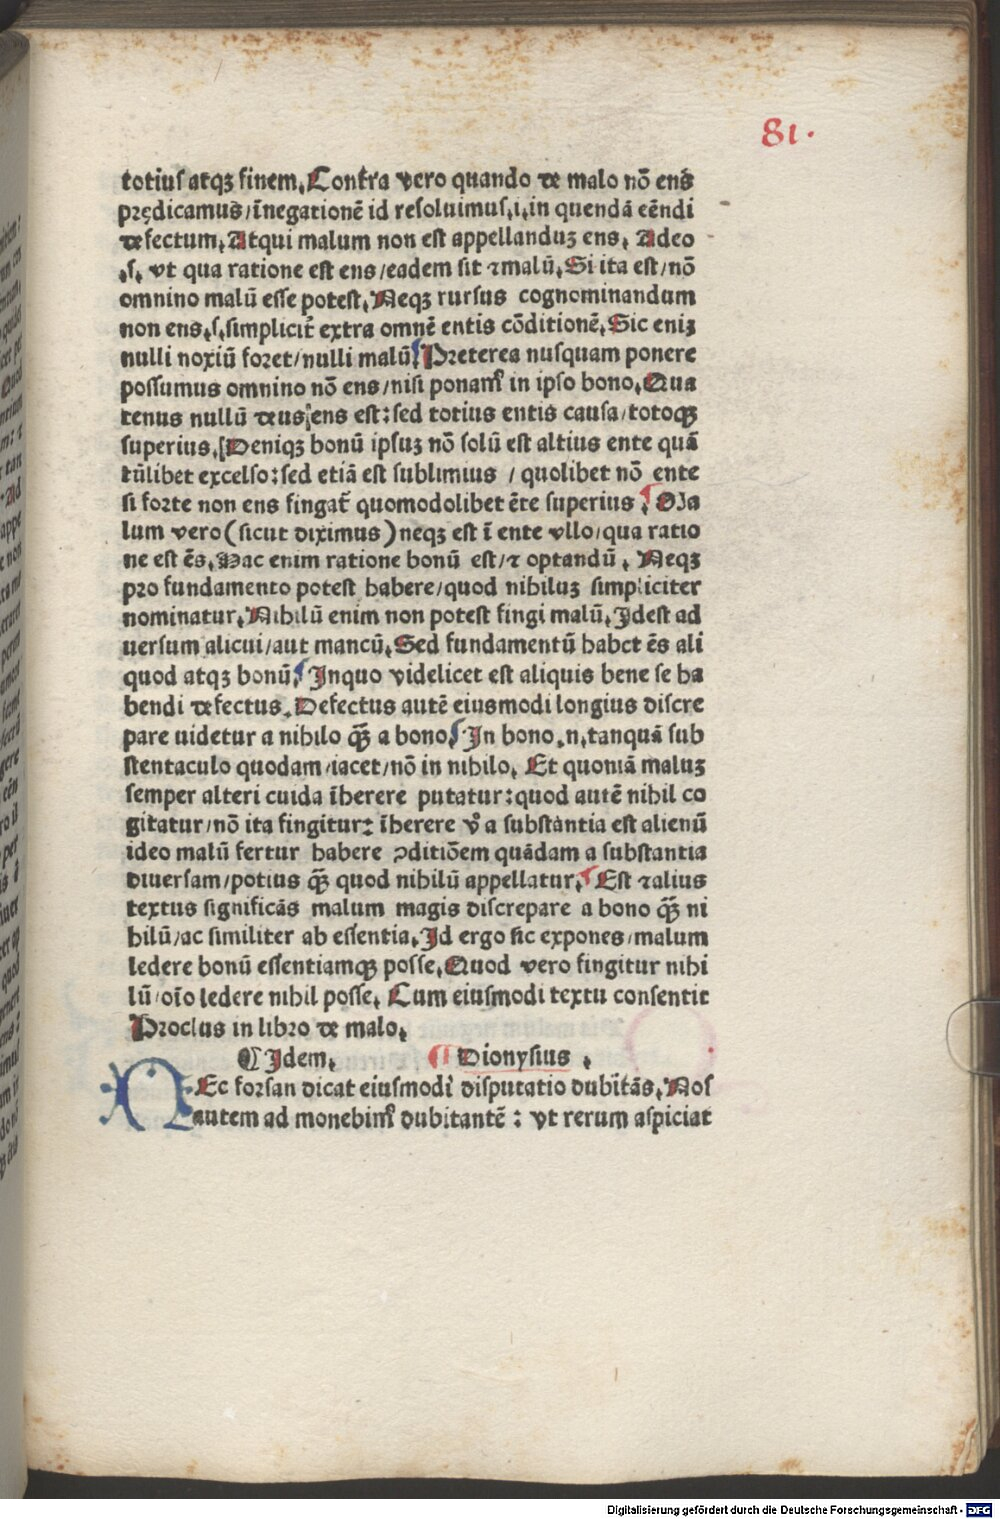 81.
totius atqȝ finem. Contra vero quando de malo nõ ens
prędicamus/ īnegationẽ id resoluimus.i.in quendã eẽndi
defectum. Atqui malum non est appellanduȝ ens. Adeo
.s. vt qua ratione est ens/eadem sit ⁊malũ. Si ita est/nõ
omnino malũ esse potest. Neqȝ rursus cognominandum
non ens.s.simplicit̃ extra omnẽ entis cõditionẽ. Sic eniȝ
nulli noxiũ foret/nulli malũ. Preterea nusquam ponere
possumus omnino nõ ens/nisi ponam⁹ in ipso bono. Qua
tenus nullũ deus ens est: sed totius entis causa/totoqȝ
superius. Deniqȝ bonũ ipsuȝ nõ solũ est altius ente quã
tũlibet excelso: sed etiã est sublimius / quolibet nõ ente
si forte non ens fingat̃ quomodolibet ẽte superius. Ma
lum vero (sicut diximus) neqȝ est ĩ ente vllo/qua ratio
ne est ẽs. Hac enim ratione bonũ est/⁊ optandũ. Neqȝ
pro fundamento potest habere/quod nihiluȝ simpliciter
nominatur. Nihilũ enim non potest fingi malũ. Idest ad
uersum alicui/aut mancũ. Sed fundamentũ habet ẽs ali
quod atqȝ bonũ. Inquo videlicet est aliquis bene se ha
bendi defectus. Defectus autẽ eiusmodi longius discre
pare uidetur a nihilo qȝ̃ a bono. In bono.n.tanquã sub
stentaculo quodam/iacet/nõ in nihilo. Et quoniã maluȝ
semper alteri cuida ĩherere putatur: quod autẽ nihil co
gitatur/nõ ita fingitur: ĩherere v̊o a substantia est alienũ
ideo malũ fertur habere ꝯditiõem quãdam a substantia
diuersam/potius qȝ̃ quod nihilũ appellatur. Est ⁊alius
textus significãs malum magis discrepare a bono qȝ̃ ni
hilũ/ac similiter ab essentia. Id ergo sic expones/malum
ledere bonũ essentiamqȝ posse. Quod vero fingitur nihi
lũ/oĩo ledere nihil posse. Cum eiusmodi textu consentit
Proclus in libro de malo.
¶ Idem. ¶ Dionysius .
NEc forsan dicat eiusmodi disputatio dubitãs. Nos
autem ad monebim⁹ dubitantẽ : vt rerum aspiciat
Digitalisierung gefördert durch die Deutsche Forschungsgemeinschaft - DFG